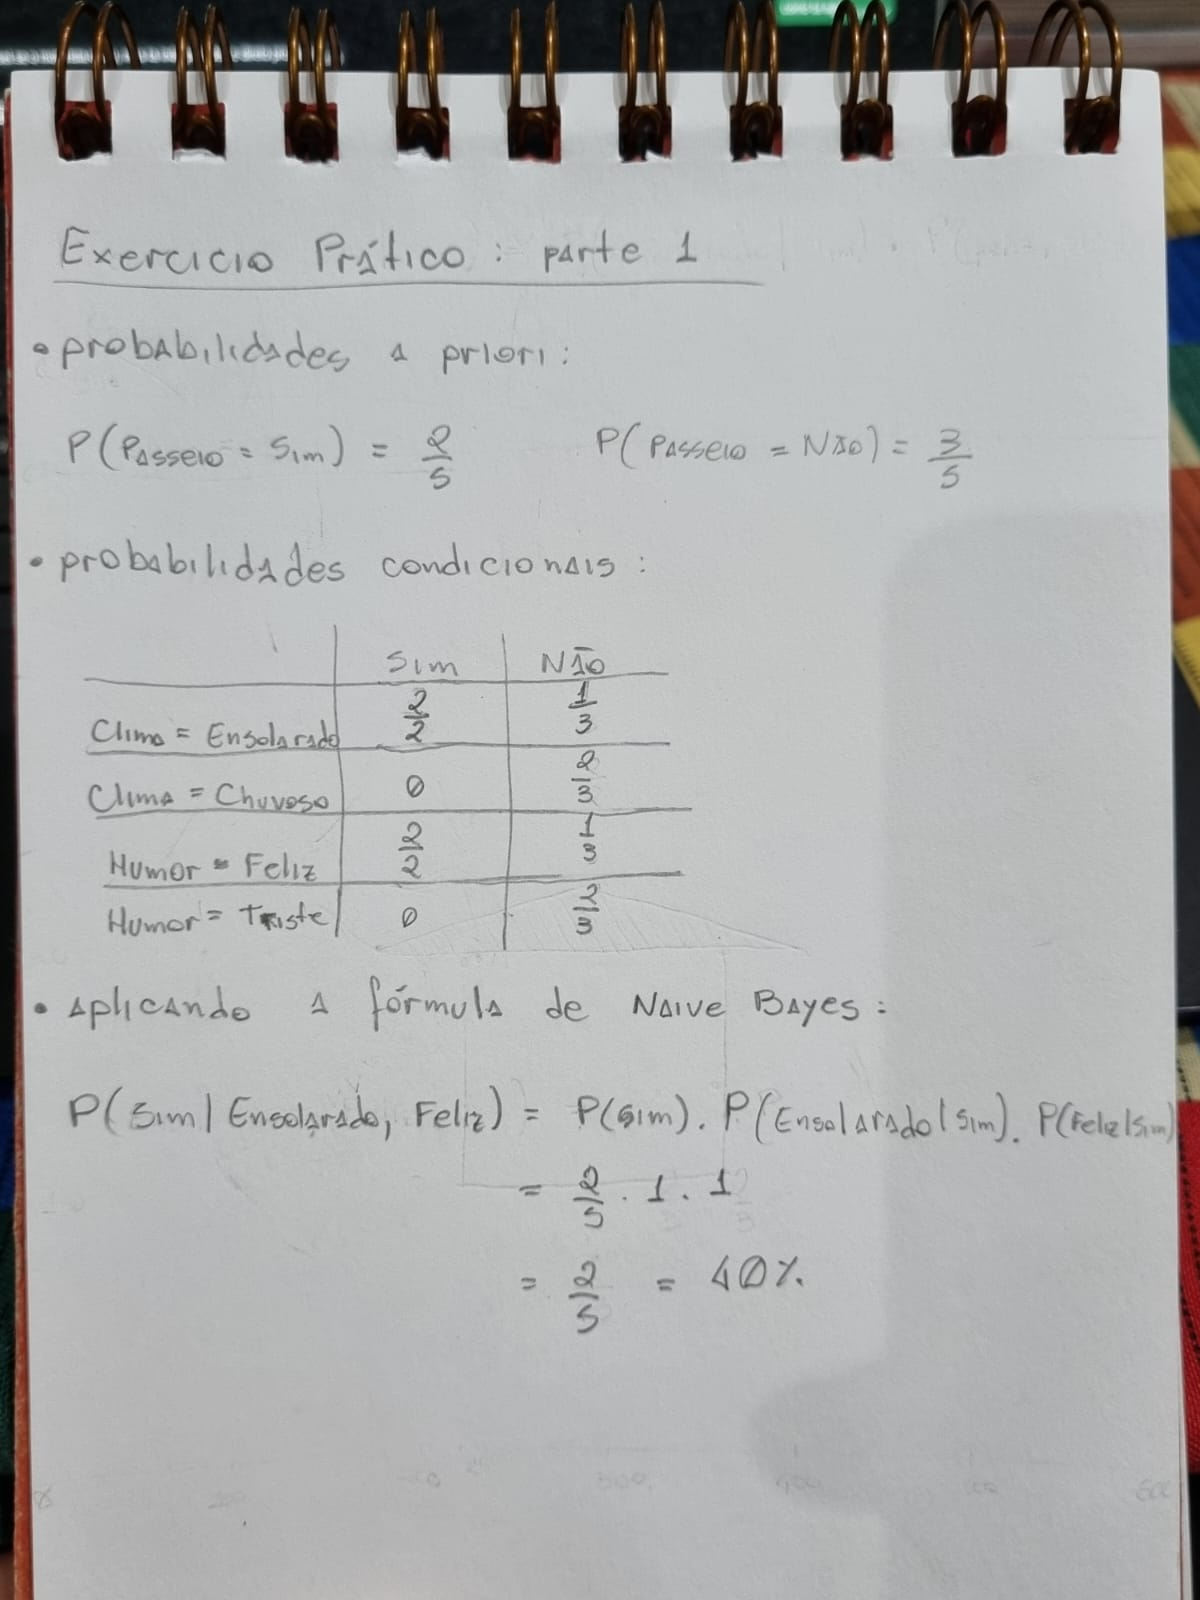 Exercicio Prático : parte 1
• probabilidades a priori :
P(Passeio = Sim) = 2/5 P(Passeio = Não) = 3/5
• probabilidades condicionais :
Sim Não
Clima = Ensolarado 2/2 1/3
Clima = Chuvoso 0 2/3
Humor = Feliz 2/2 1/3
Humor = Triste 0 2/3
• Aplicando a fórmula de Naive Bayes :
P(Sim | Ensolarado, Feliz) = P(Sim) . P(Ensolarado | Sim) . P(Feliz|Sim)
= 2/5 . 1 . 1
= 2/5 = 40%